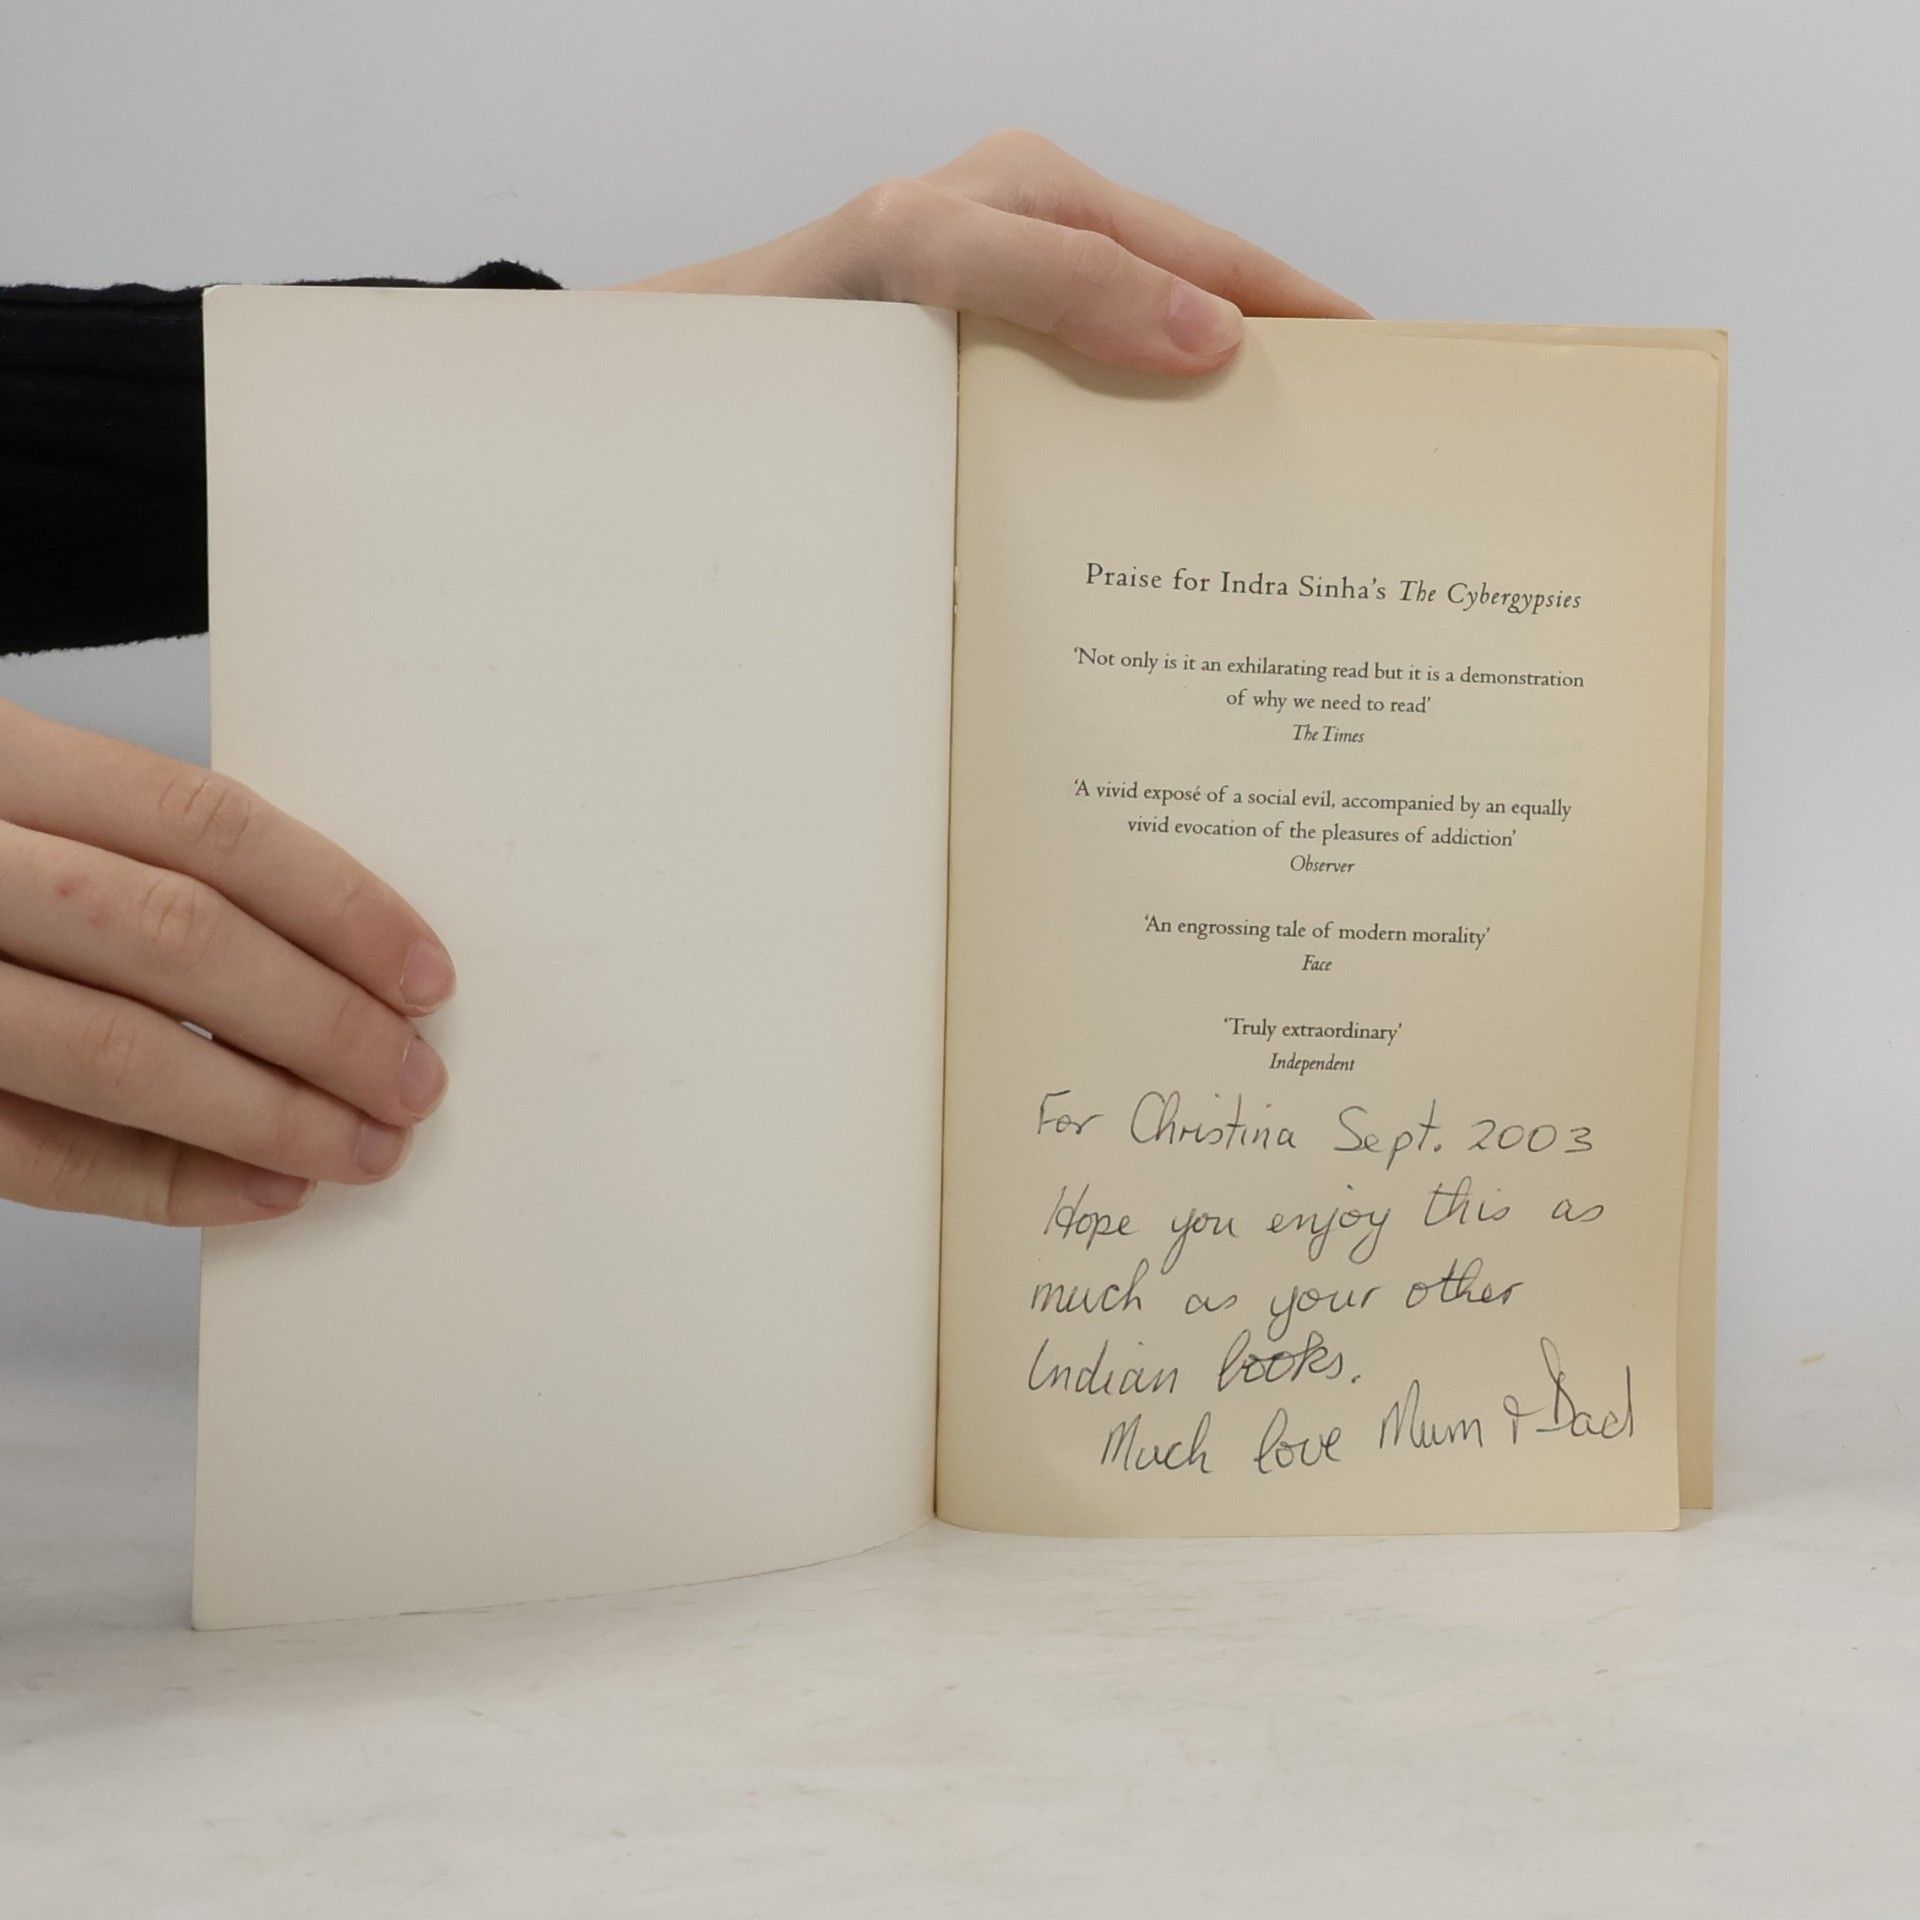 Praise for Indra Sinha's The Cybergypsies
'Not only is it an exhilarating read but it is a demonstration
of why we need to read'
The Times
'A vivid exposé of a social evil, accompanied by an equally
vivid evocation of the pleasures of addiction'
Observer
'An engrossing tale of modern morality'
Face
'Truly extraordinary'
Independent
For Christina Sept. 2003
Hope you enjoy this as
much as your other
Indian books.
Much love Mum & Dad